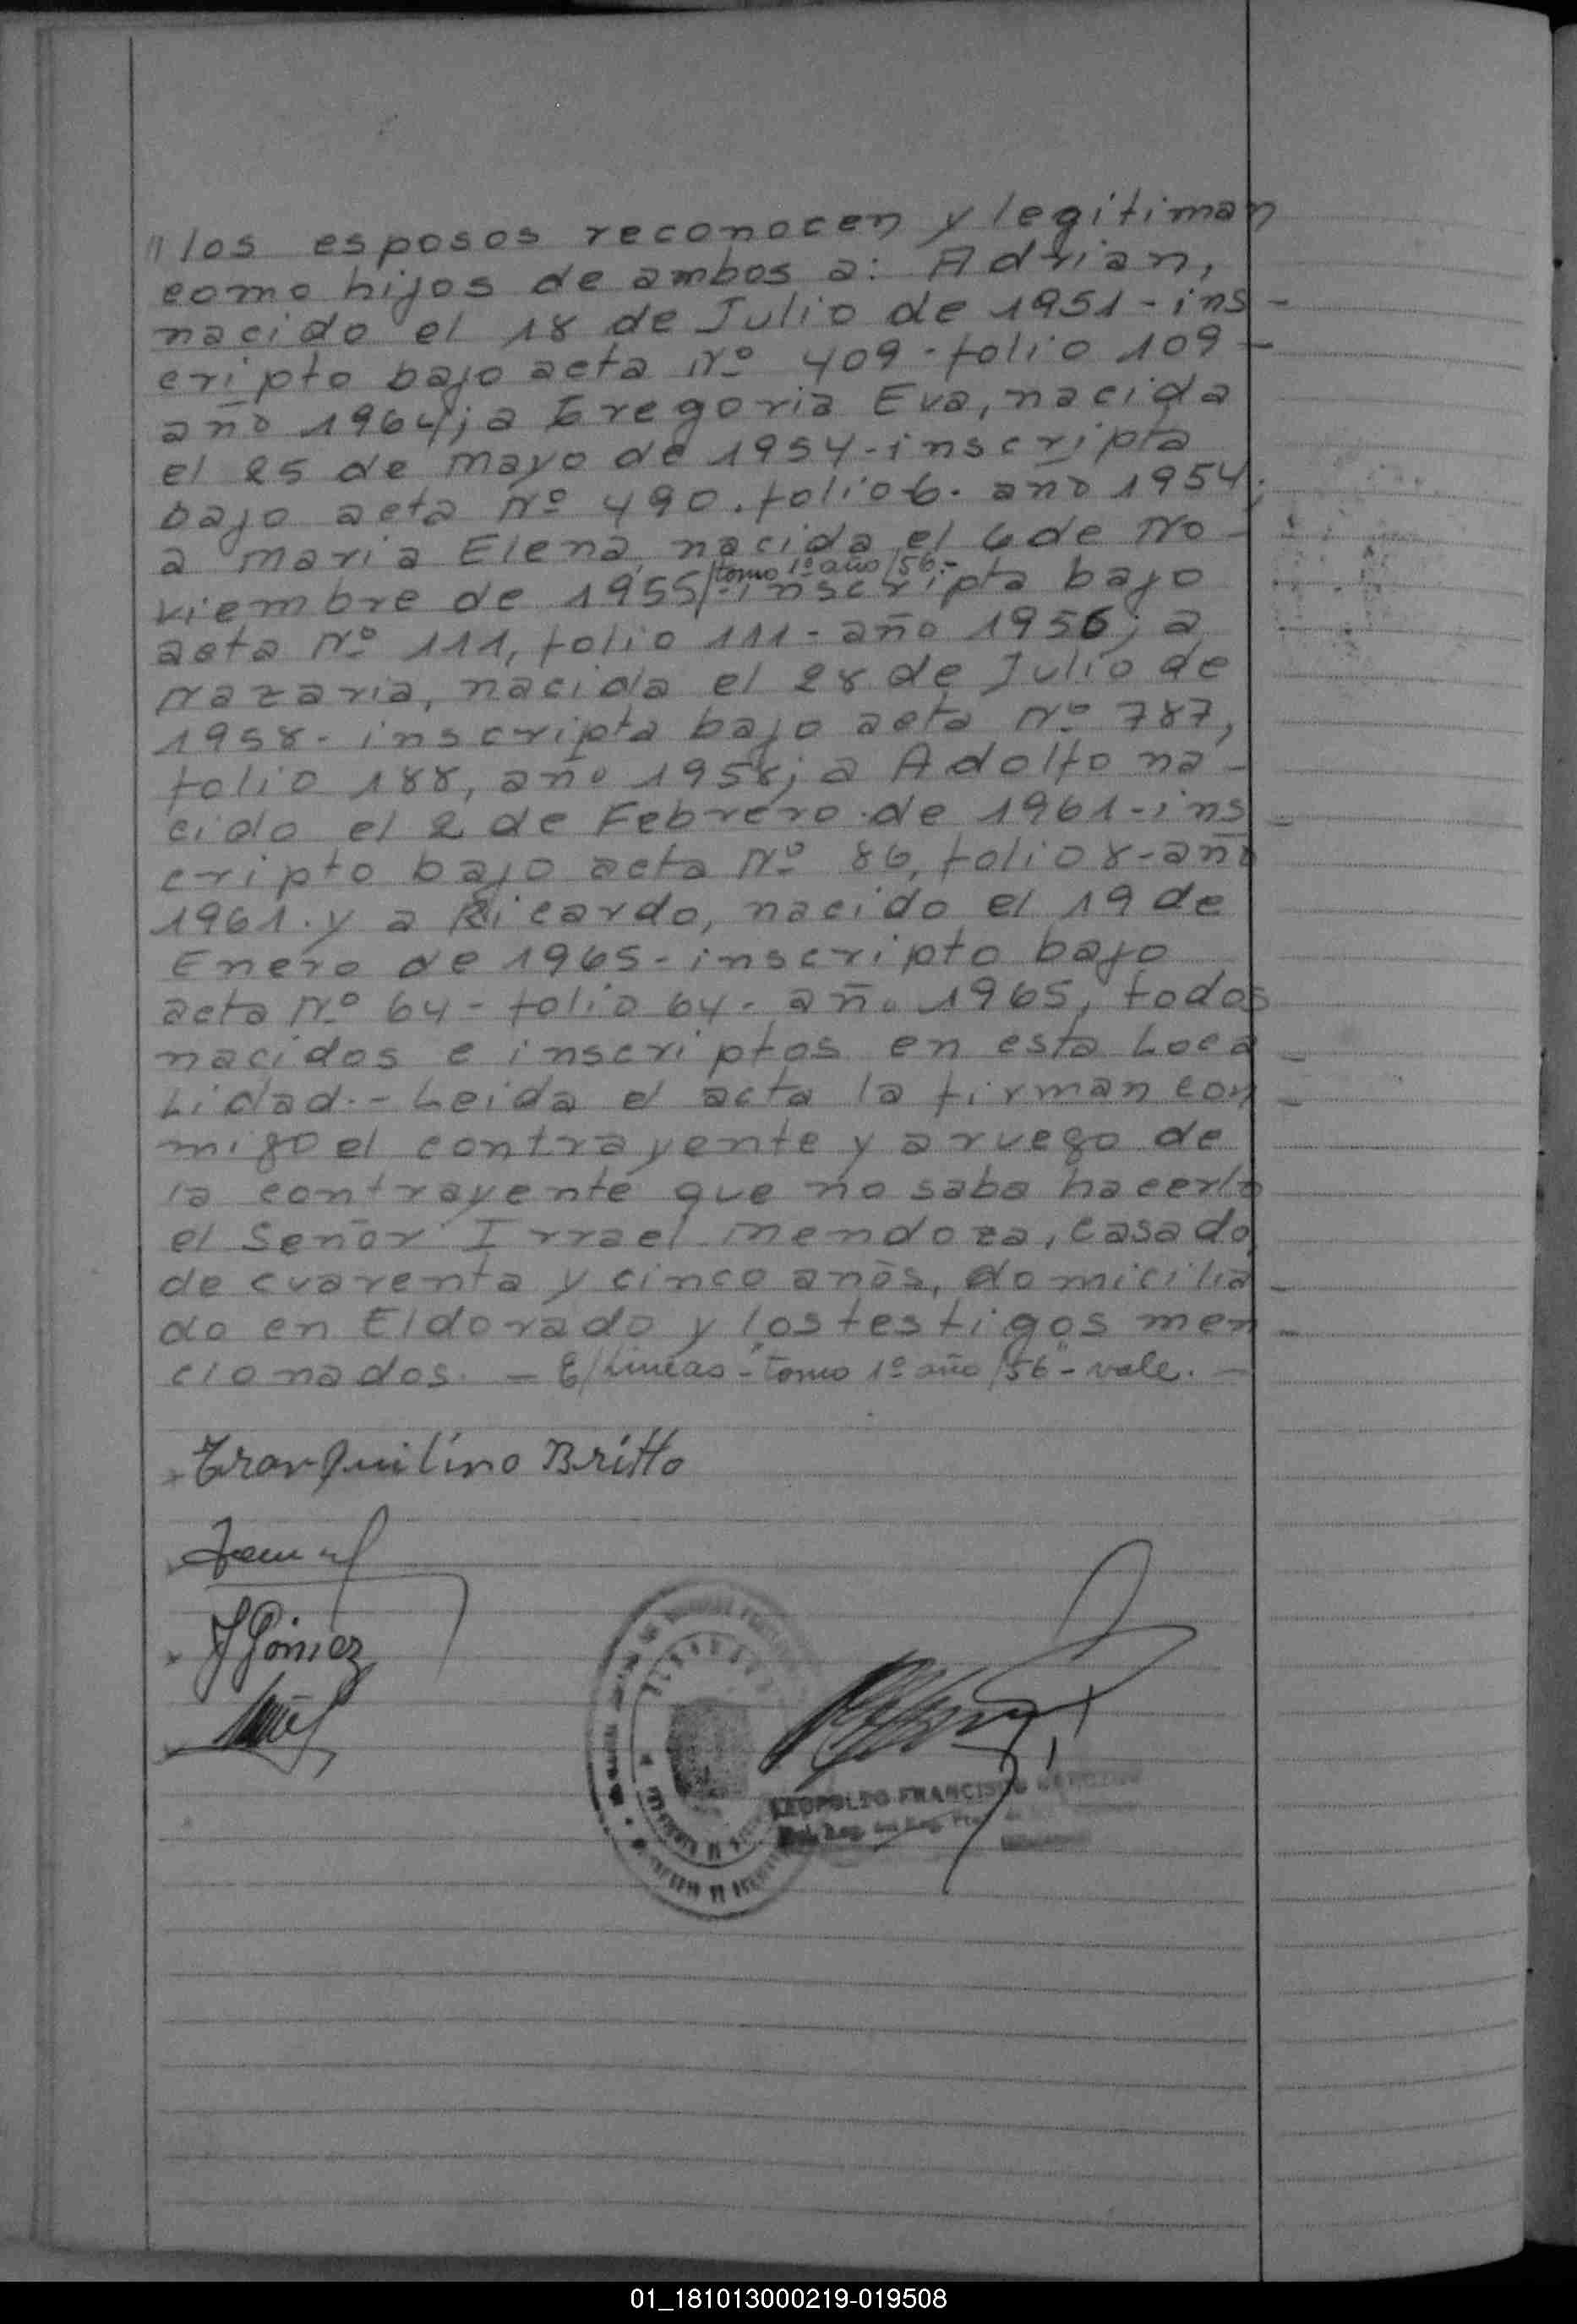 "los esposos reconocen y legitiman
como hijos de ambos a: Adrian,
nacido el 18 de Julio de 1951 - ins -
cripto bajo acta Nº 409 - folio 109 -
año 1964; a Gregoria Eva, nacida
el 25 de mayo de 1954 - inscripta
bajo acta Nº 490. folio 6. año 1954;
a maria Elena, nacida el 6 de No -
tomo 1º año /56.-
viembre de 1955/- inscripta bajo
acta Nº 111, folio 111 - año 1956; a
Nazaria, nacida el 28 de Julio de
1958 - inscripta bajo acta Nº 787,
folio 188, año 1958; a Adolfo na -
cido el 2 de Febrero de 1961 - ins -
cripto bajo acta Nº 86, folio 8 - año
1961. y a Ricardo, nacido el 19 de
Enero de 1965 - inscripto bajo
acta Nº 64 - folio 64 - año 1965, todos
nacidos e inscriptos en esta Loca -
Lidad. - Leida el acta la firman con -
migo el contrayente y a ruego de
la contrayente que no sabe hacerlo
el Señor Irrael mendoza, casado,
de cuarenta y cinco años, domicilia -
do en Eldorado y los testigos men -
cionados. = E/Lineas - "tomo 1º año /56" - vale. -
Tranquilino Britto
J Gómez
LEOPOLDO FRANCISCO
01_181013000219-019508